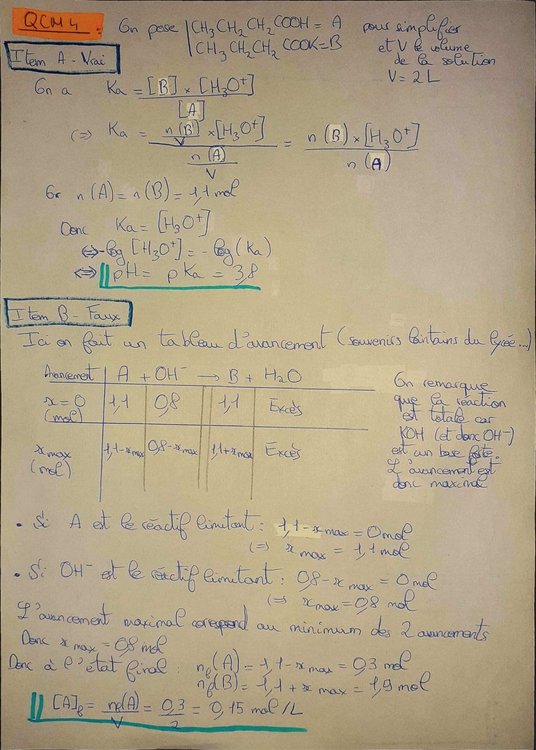 QCM 4 : On pose | CH₃CH₂CH₂COOH = A pour simplifier
| CH₃CH₂CH₂COOK = B et V le volume
de la solution
V = 2 L
Item A - Vrai
On a Ka = [B] × [H₃O⁺] / [A]
(=> Ka = (n(B)/V × [H₃O⁺]) / (n(A)/V) = n(B) × [H₃O⁺] / n(A)
Or n(A) = n(B) = 1,1 mol
Donc Ka = [H₃O⁺]
⇔ -log [H₃O⁺] = -log(Ka)
⇔ || pH = pKa = 3,8
Item B - Faux
Ici on fait un tableau d'avancement (souvenirs lointains du lycée...)
Avancement | A + OH⁻ → B + H₂O
x = 0 (mol) | 1,1 | 0,8 || 1,1 | Excès
x max (mol) | 1,1 - x max | 0,8 - x max || 1,1 + x max | Excès
On remarque
que la réaction
est totale car
KOH (et donc OH⁻)
est un base forte.
L'avancement est
donc maximal
• Si A est le réactif limitant : 1,1 - x max = 0 mol
(=> x max = 1,1 mol
• Si OH⁻ est le réactif limitant : 0,8 - x max = 0 mol
(=> x max = 0,8 mol
L'avancement maximal correspond au minimum des 2 avancements
Donc x max = 0,8 mol
Donc à l'état final : nf(A) = 1,1 - x max = 0,3 mol
nf(B) = 1,1 + x max = 1,9 mol
|| [A]f = nf(A)/V = 0,3/2 = 0,15 mol/L